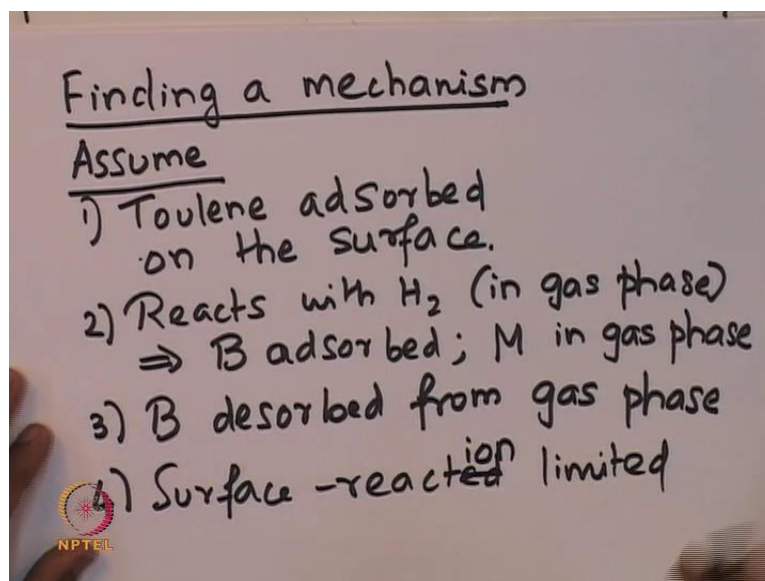 Finding a mechanism
Assume
1) Toulene adsorbed
on the surface.
2) Reacts with H2 (in gas phase)
⇒ B adsorbed; M in gas phase
3) B desorbed from gas phase
4) Surface-reaction limited
NPTEL